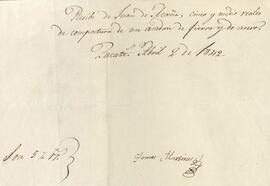 Recibí de Juan de Acuña, cinco y medio reales
de compostura de un aradon de fierro y de acero.
Zacats. Abril 2 de 1842.
Son 5 ½ rs.
Tomas Martinez